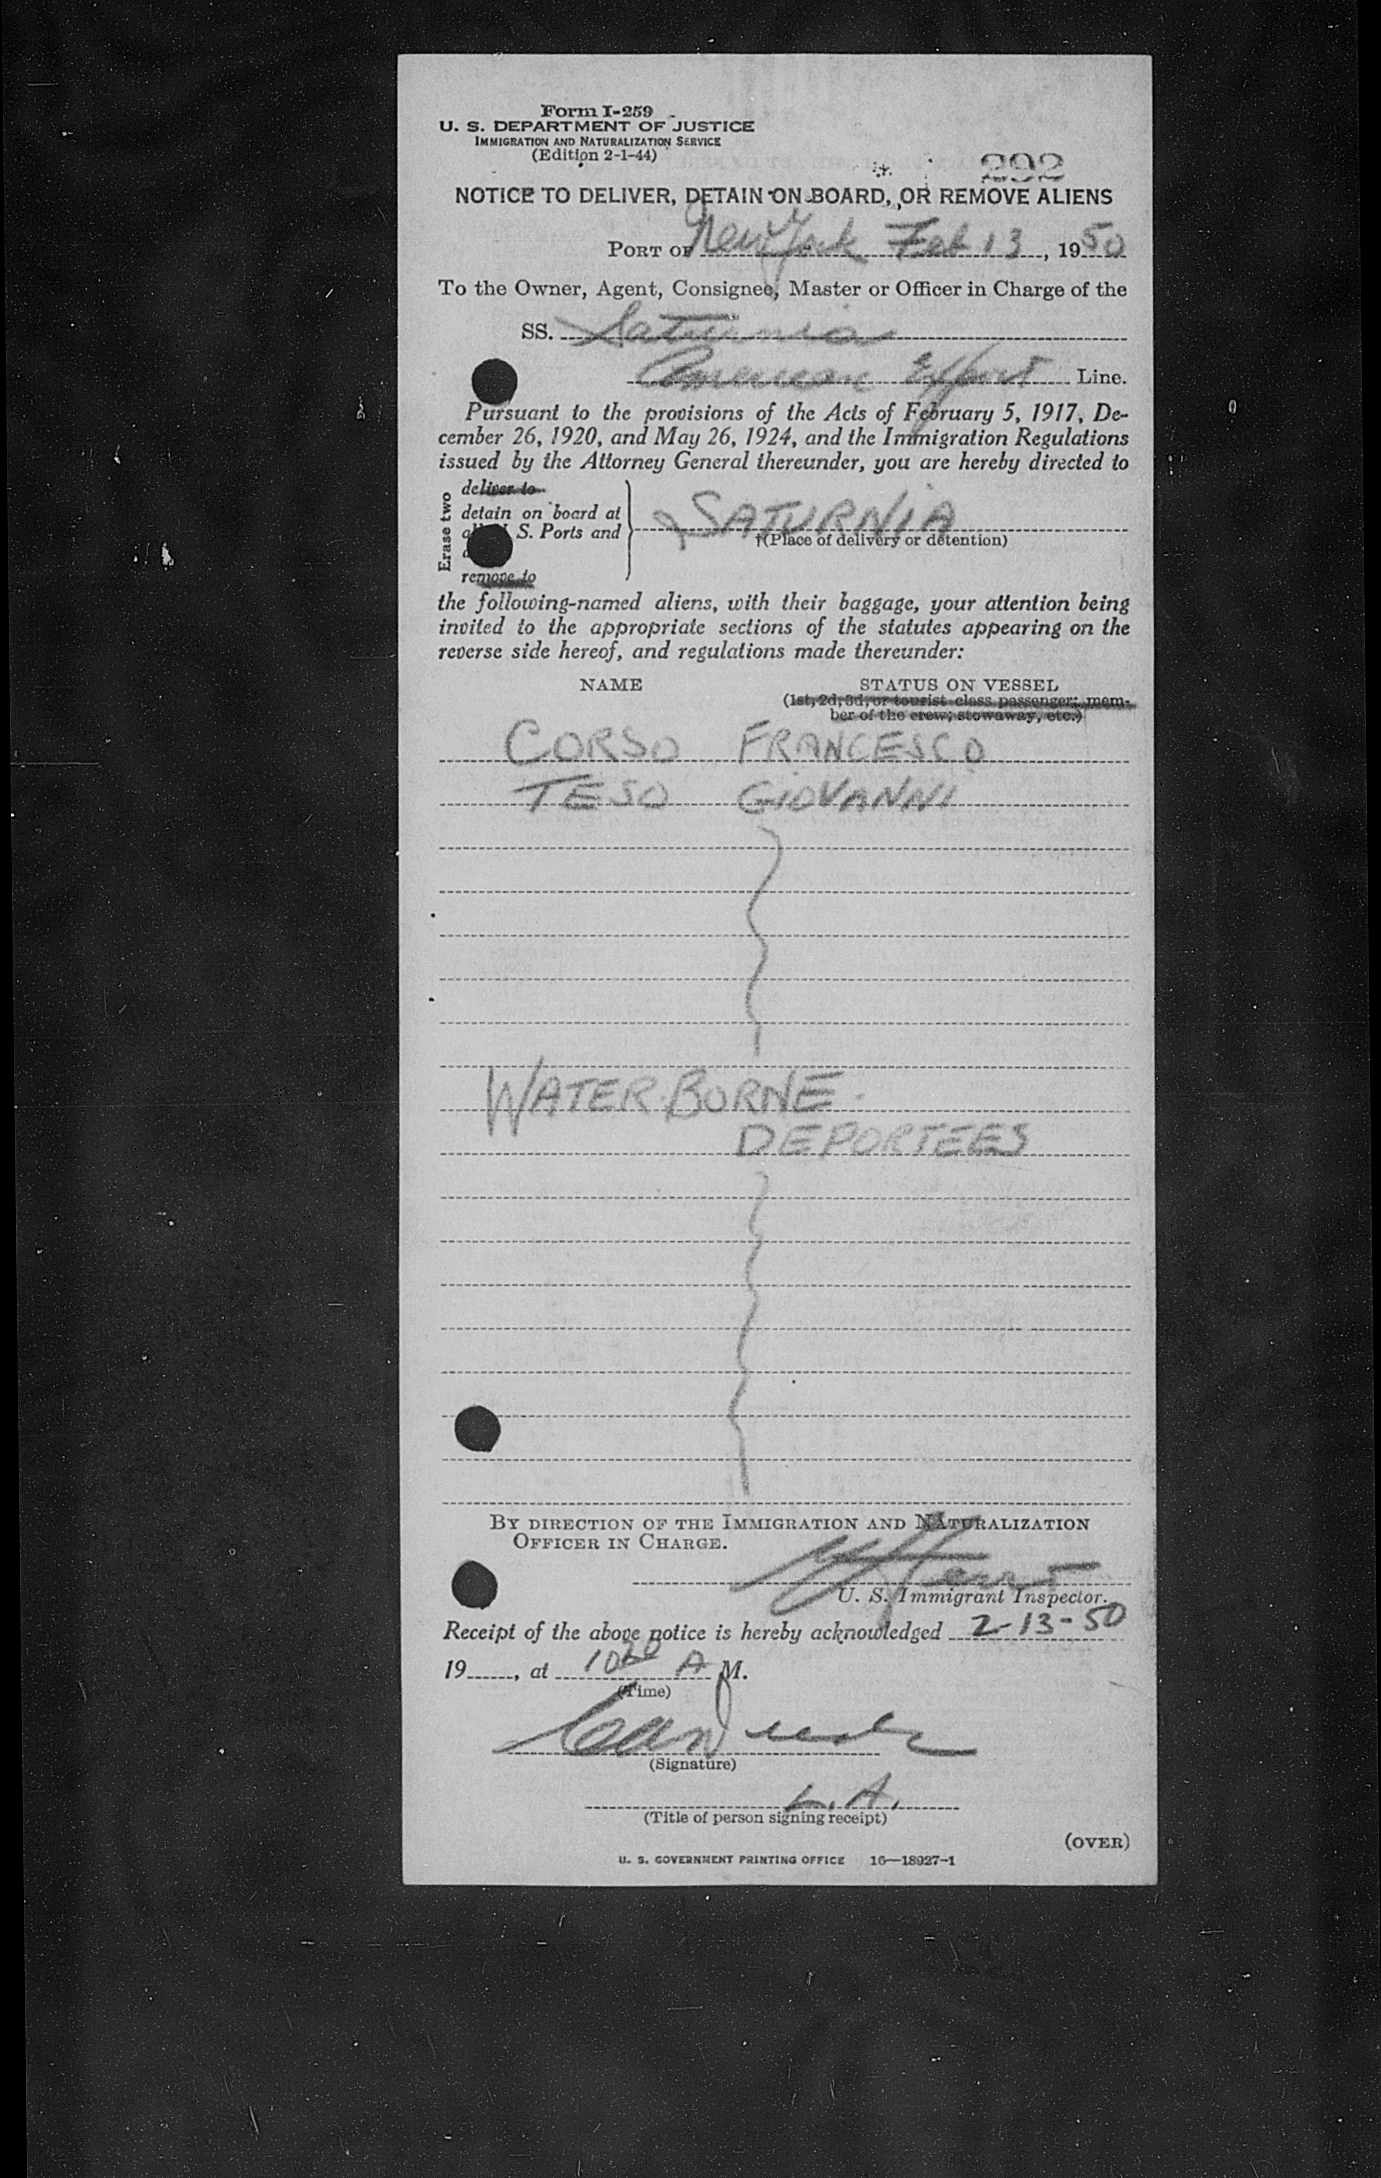 Form I-259
U. S. DEPARTMENT OF JUSTICE
IMMIGRATION AND NATURALIZATION SERVICE
(Edition 2-1-44)
292
NOTICE TO DELIVER, DETAIN ON BOARD, OR REMOVE ALIENS
PORT OF New York Feb 13, 1950
To the Owner, Agent, Consignee, Master or Officer in Charge of the
SS. Saturnia
American Export Line.
Pursuant to the provisions of the Acts of February 5, 1917, De-
cember 26, 1920, and May 26, 1924, and the Immigration Regulations
issued by the Attorney General thereunder, you are hereby directed to
Erase two
deliver to
detain on board at
S. Ports and
remove to
SATURNIA
†(Place of delivery or detention)
the following-named aliens, with their baggage, your attention being
invited to the appropriate sections of the statutes appearing on the
reverse side hereof, and regulations made thereunder:
NAME STATUS ON VESSEL
(1st, 2d, 3d, or tourist class passenger; mem-
ber of the crew; stowaway, etc.)
CORSO FRANCESCO
TESO GIOVANNI
WATER-BORNE
DEPORTEES
BY DIRECTION OF THE IMMIGRATION AND NATURALIZATION
OFFICER IN CHARGE.
U. S. Immigrant Inspector.
Receipt of the above notice is hereby acknowledged 2-13-50
19, at 10 A M.
(Time)
(Signature)
L. A.
(Title of person signing receipt)
(OVER)
U. S. GOVERNMENT PRINTING OFFICE 16—18927-1